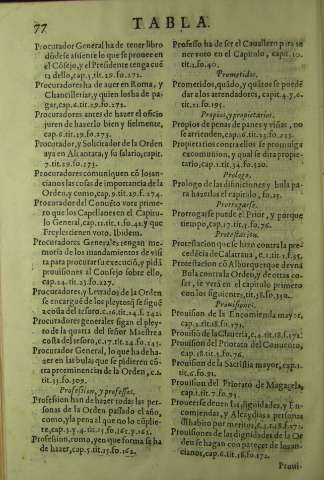 77
TABLA.
Procurador General ha de tener libro
dõde se assiente lo que se prouee en
el Cõsejo, y el Presidente tenga cuẽ
ta dello, cap. 1. tit. 29. fo. 272.
Procuradores ha de auer en Roma, y
Chancillerias, y quien los ha de pa-
gar, cap. 6. tit. 29. fo. 273.
Procuradores antes de hazer el oficio
juren de hazerlo bien y fielmente,
cap. 6. tit. 29. fo. 273.
Procurador, y Solicitador de la Orden
aya en Alcantara, y su salario, capit.
7. tit. 29. fo. 273.
Procuradores comuniquen cõ los an-
cianos las cosas de importancia de la
Orden, y como, cap. 9. tit. 29. f. 274.
Procurador del Conuẽto vote prime-
ro que los Capellanes en el Capitu-
lo General, cap. 11. tit. 1. fo. 42. y que
Freyles tienen voto. Ibidem.
Procuradores Generales tengan me-
moria de los mandamientos de visi
ta para procurar la execuciõ, y pidã
prouisiones al Consejo sobre ello,
cap. 24. tit. 23. fo. 227.
Procuradores, y Letrados de la Orden
se encarguẽ de los pleytos q̃ se siguẽ
a costa del tesoro, c. 16. tit. 24. f. 242.
Procuradores generales sigan el pley-
to de la quarta del señor Maestre a
costa del tesoro, c. 17. tit. 24. fo. 243.
Procurador General, lo que ha de ha-
zer en las bulas que se pidieren cõ-
tra preeminencias de la Orden, c. 2.
tit. 35. fo. 309.
Profession, y professos.
Profession han de hazer todas las per-
sonas de la Orden passado el año,
como, y la pena al que no lo cũplie-
re, cap. 3. y 4. tit. 15. fo. 162. y 163.
Profession, como, y en que forma se ha
de hazer, cap. 5. tit. 15. fo. 162.
Professo ha de ser el Cauallero para te-
ner voto en el Capitulo, capit. 10.
tit. 1. fo. 40.
Prometidos.
Prometidos, quãdo, y quãtos se puedẽ
dar a los arrendadores, capit. 4. y 6.
tit. 21. fo. 195.
Propios, y propietarios.
Propios de penas de panes y viñas, no
se arrienden, cap. 6. tit. 23. fo. 223.
Propietarios contra ellos se promulga
excomunion, y qual se dira propie-
tario, cap. 1. tit. 34. fo. 320.
Prologo.
Prologo de las difiniciones y bula pa-
ra hazerlos el capitulo, fo. 25.
Prorrogarse.
Prorrogarse puede el Prior, y porque
tiempo, cap. 17. tit. 3. fo. 76.
Protestacion.
Protestacion que se hizo contra la pre-
cedẽcia de Calatraua, c. 1. tit. 2. f. 35.
Protestacion cõ Alburquerque deuuna
Bula contra Orden, y de otras co-
sas, se verà en el capitulo primero
con los siguientes, tit. 38. fo. 350.
Prouisiones.
Prouision de la Encomienda mayor,
cap. 2. tit. 18. fo. 171.
Prouisiõ de la Claueria, c. 4. tit. 18. f. 172.
Prouision del Priorato del Conuento,
cap. 18. tit. 3. fo. 76.
Prouision de la Sacristia mayor, cap. 1.
tit. 6. fo. 91.
Prouision del Priorato de Magazela,
cap. 1. tit. 7. fo. 93.
Prouerse deuen las dignidades, y En-
comiendas, y Alcaydias a personas
del habito por meritos, c. 5. tit. 18. f. 172.
Prouisiones de las dignidades de la Or
den se hagan con parecer de los an-
cianos, cap. 6. tit. 18. fo. 172.
Proui-